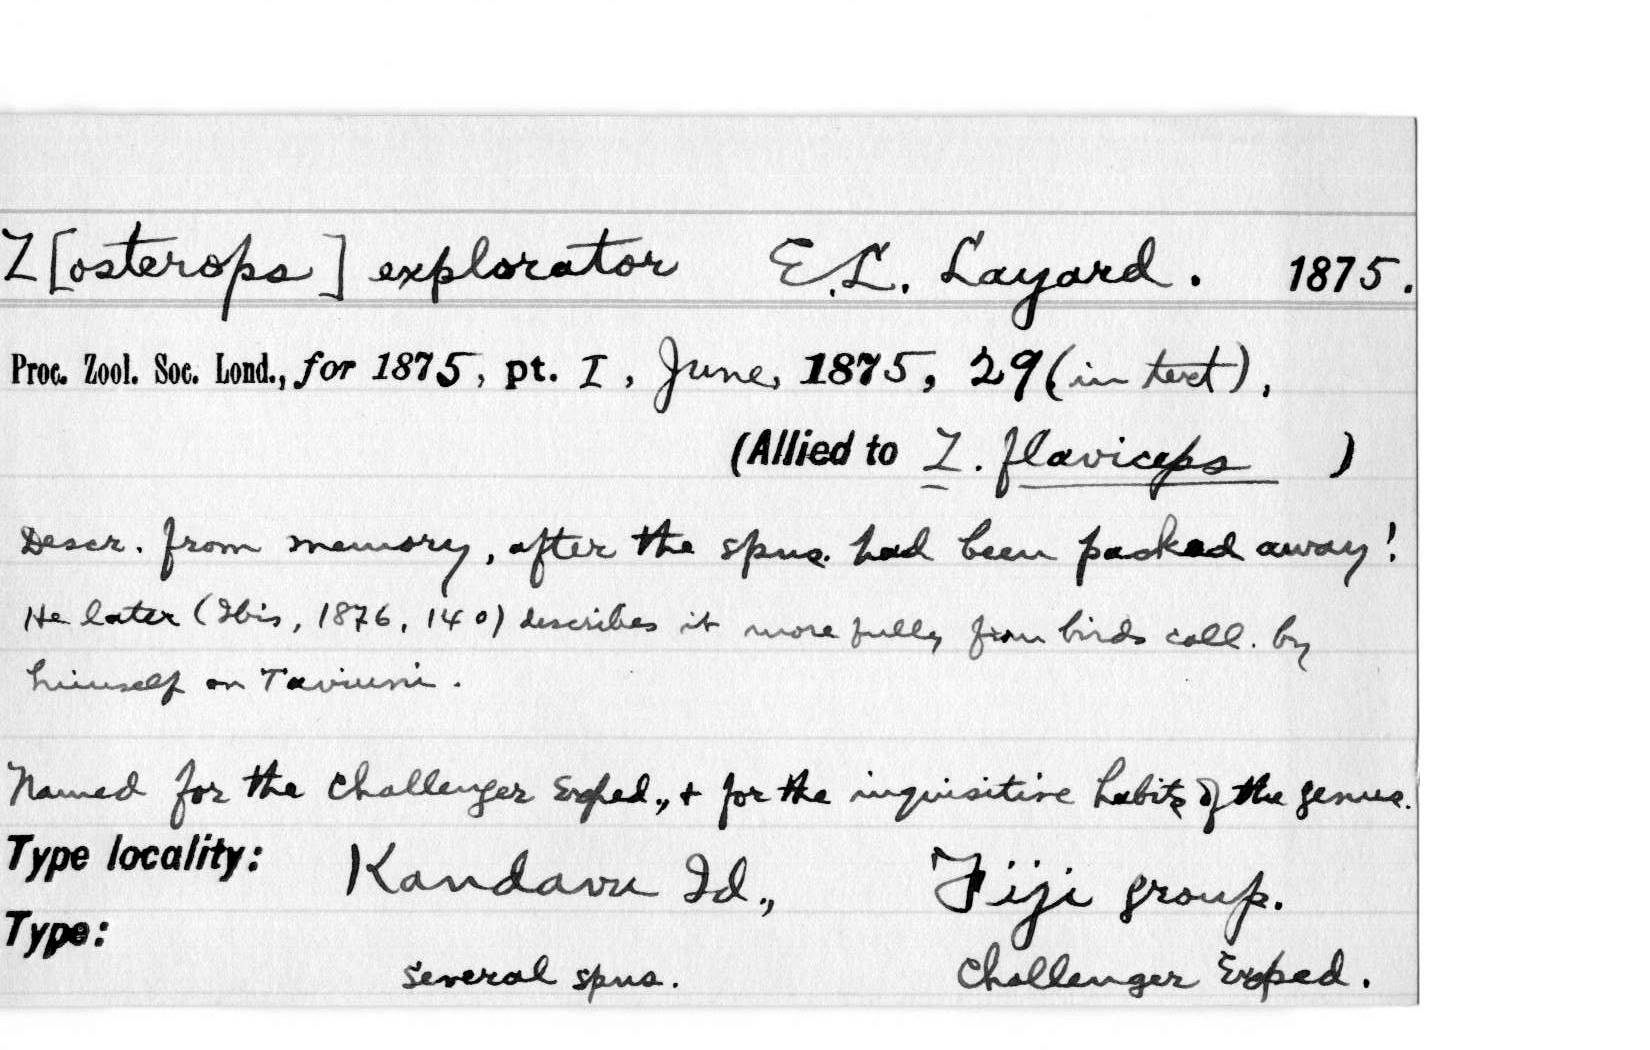 Z[osterops] explorator E.L. Layard. 1875.
Proc. Zool. Soc. Lond., for 1875, pt. I, June, 1875, 29 (in text),
(Allied to Z. flaviceps )
Descr. from memory, after the spns. had been packed away!
He later (Ibis, 1876, 140) describes it more fully from birds coll. by
himself on Taviuni.
Named for the Challenger Exped., + for the inquisitive habits of the genus.
Type locality: Kandavu Id., Fiji group.
Type:
several spns. Challenger Exped.